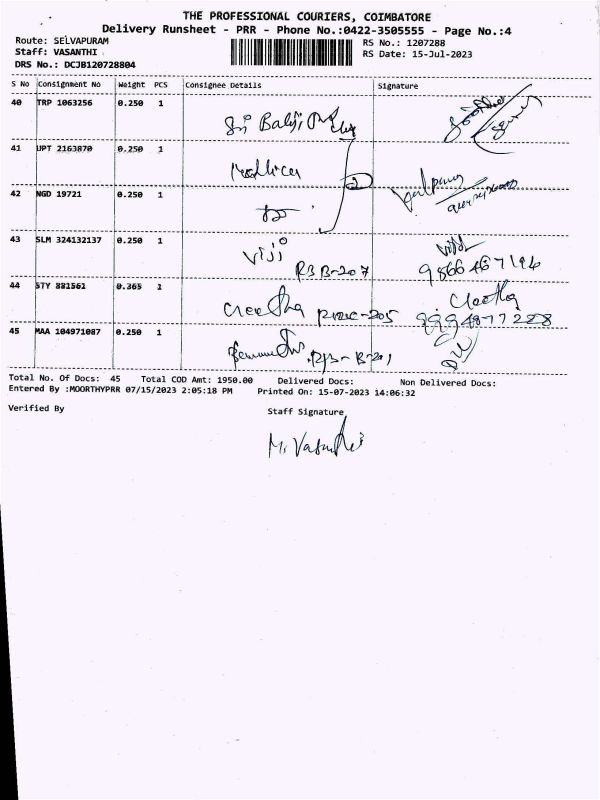 THE PROFESSIONAL COURIERS, COIMBATORE
Delivery Runsheet - PRR - Phone No.:0422-3505555 - Page No.:4
Route: SELVAPURAM RS No.: 1207288
Staff: VASANTHI RS Date: 15-Jul-2023
DRS No.: DCJB120728804
S No Consignment No Weight PCS Consignee Details Signature
40 TRP 1063256 0.250 1
Sri Balaji
41 UPT 2163870 0.250 1
Mallica
42 NGD 19721 0.250 1
43 SLM 324132137 0.250 1
Viji RBB-207
44 STY 881561 0.365 1
Geetha Geetha
9994877228
45 MAA 104971087 0.250 1
Total No. Of Docs: 45 Total COD Amt: 1950.00 Delivered Docs: Non Delivered Docs:
Entered By :MOORTHYPRR 07/15/2023 2:05:18 PM Printed On: 15-07-2023 14:06:32
Verified By Staff Signature
M. Vasanthi